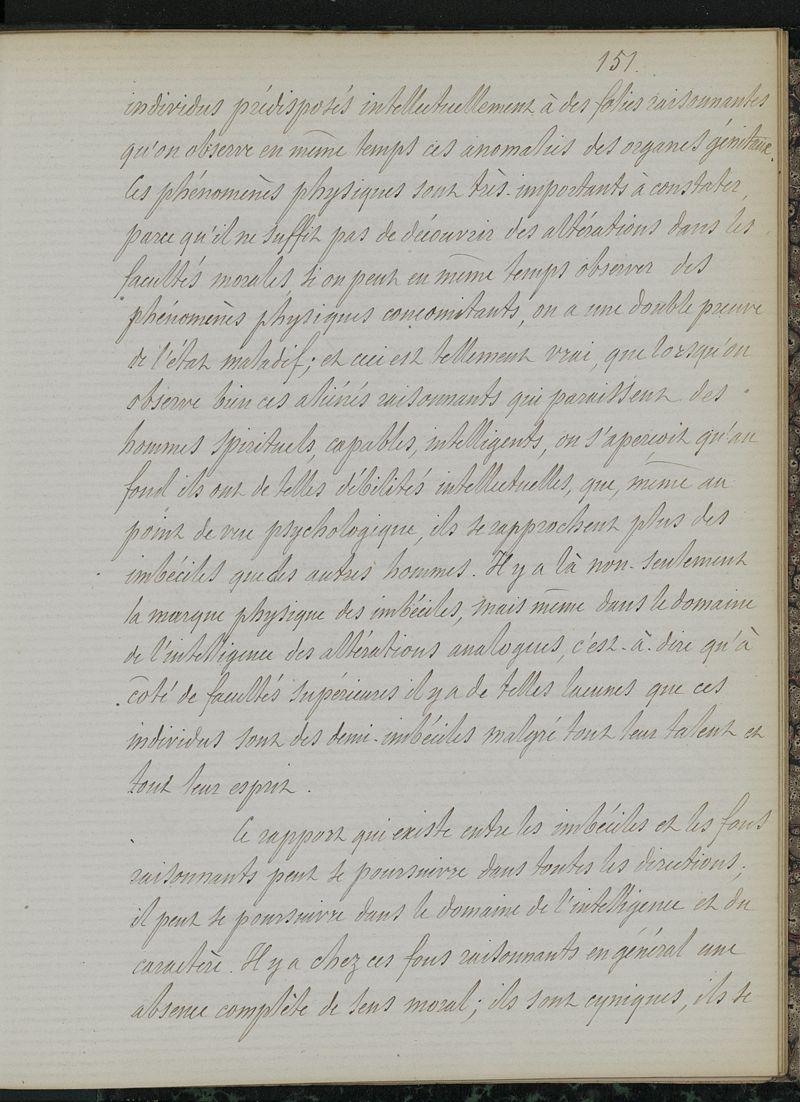 151.
individus prédisposés intellectuellement à des folies raisonnantes
qu'on observe en même temps ces anomalies des organes génitaux.
Ces phénomènes physiques sont très-importants à constater,
parce qu'il ne suffit pas de découvrir des altérations dans les
facultés morales, si on peut en même temps observer des
phénomènes physiques concomitants, on a une double preuve
de l'état maladif; et ceci est tellement vrai, que lorsqu'on
observe bien ces aliénés raisonnants qui paraissent des
hommes spirituels, capables, intelligents, on s'aperçoit qu'au
fond ils ont de telles débilités intellectuelles, que, même au
point de vue psychologique, ils se rapprochent plus des
imbéciles que des autres hommes. Il y a là non-seulement
la marque physique des imbéciles, mais même dans le domaine
de l'intelligence des altérations analogues, c'est-à-dire qu'à
côté de facultés supérieures il y a de telles lacunes que ces
individus sont des demi-imbéciles malgré tout leur talent et
tout leur esprit.
Ce rapport qui existe entre les imbéciles et les fous
raisonnants peut se poursuivre dans toutes les directions;
il peut se poursuivre dans le domaine de l'intelligence et du
caractère. Il y a chez ces fous raisonnants en général une
absence complète de sens moral; ils sont cyniques, ils se